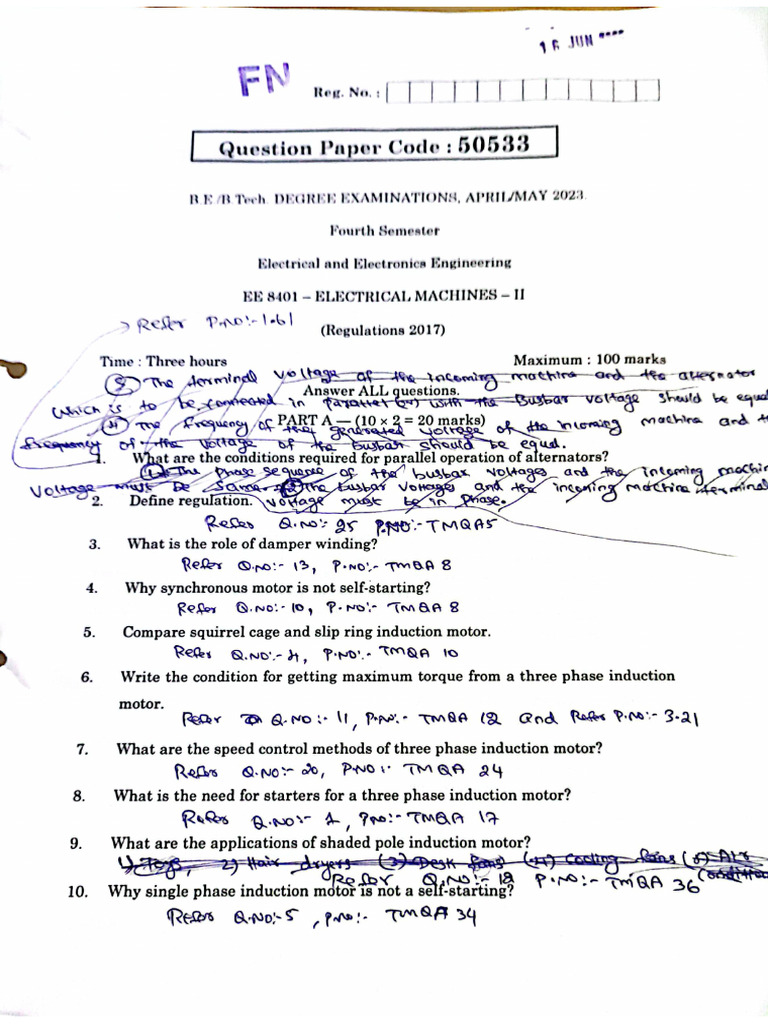 16 JUN
FN
Reg. No. :
Question Paper Code : 50533
B.E./B.Tech. DEGREE EXAMINATIONS, APRIL/MAY 2023.
Fourth Semester
Electrical and Electronics Engineering
EE 8401 – ELECTRICAL MACHINES – II
→ Refer P.no:-1.61
(Regulations 2017)
Time : Three hours Maximum : 100 marks
The terminal voltage of the incoming machine and the alternator
Answer ALL questions.
which is to be connected in parallel with the Busbar voltage should be equal
PART A — (10 × 2 = 20 marks)
(4) The frequency of the generated voltage of the incoming machine and the
frequency of the voltage of the busbar should be equal.
1. What are the conditions required for parallel operation of alternators?
(1) The phase sequence of the busbar voltages and the incoming machine
voltage must be same. (2) The busbar voltages and the incoming machine terminal
2. Define regulation. voltage must be in phase.
Refer Q.no:- 25 P.NO:-TMQA5
3. What is the role of damper winding?
Refer Q.no:- 13, P.no:- TMQA 8
4. Why synchronous motor is not self-starting?
Refer Q.no:-10, P.no:- TMQA 8
5. Compare squirrel cage and slip ring induction motor.
Refer Q.no:-4, P.no:- TMQA 10
6. Write the condition for getting maximum torque from a three phase induction
motor.
Refer Q.no:- 11, P.no:- TMQA 12 and Refer P.no:- 3.21
7. What are the speed control methods of three phase induction motor?
Refer Q.no:- 20, P.no:- TMQA 24
8. What is the need for starters for a three phase induction motor?
Refer Q.no:- 1, P.no:-TMQA 17
9. What are the applications of shaded pole induction motor?
1) Toys, 2) Hair dryers (3) Desk fans (4) Cooling fans (5) Air
Refer Q.NO:- 18 P.no:- TMQA 36
10. Why single phase induction motor is not a self-starting?
Refer Q.no:-5, P.no:- TMQA 34